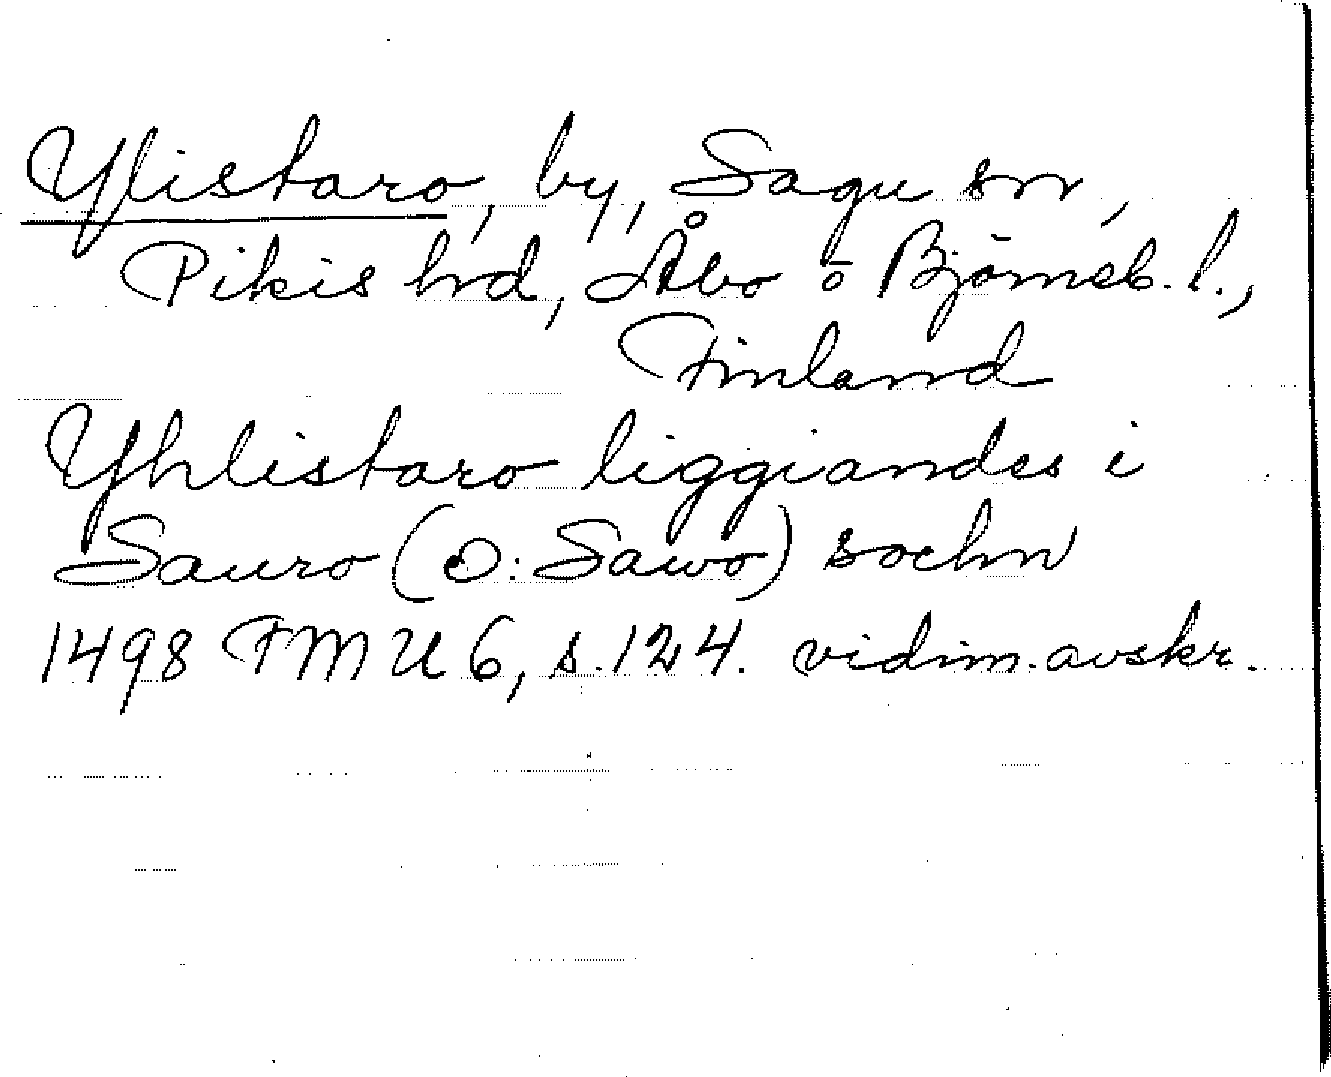 Ylistaro, by, Sagu sn,
Pikis hd, Åbo o Björneb. l.,
Finland
Yhlistaro liggiandes i
Sauro (O: Sawo) sochn
1498 FMU 6, s. 124. vidim. avskr.